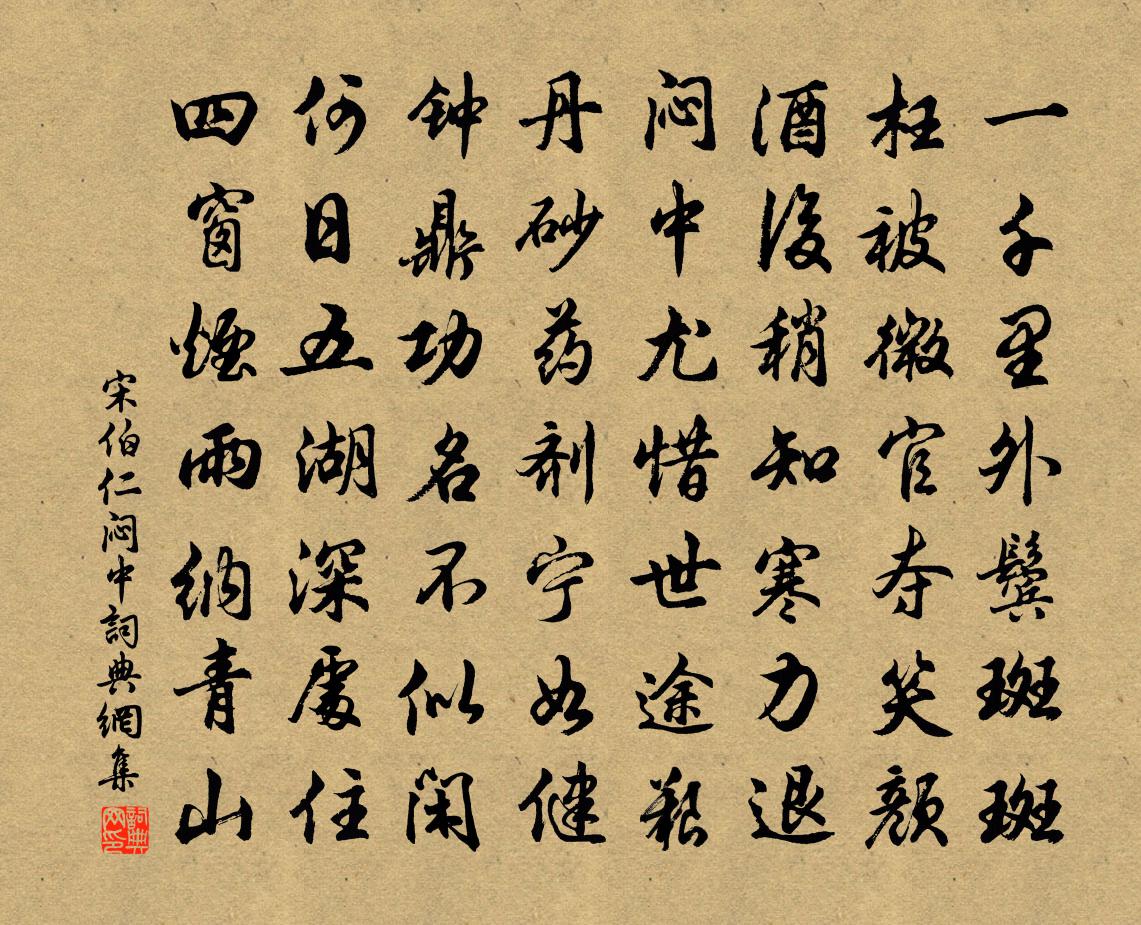 一千里外鬓斑斑
枉被微官夺笑颜
酒後稍知寒力退
闷中尤惜世途艰
丹砂药剂宁如健
钟鼎功名不似闲
何日五湖深處住
四窗煙雨納青山
宋伯仁闷中詞典網集
詞典网印